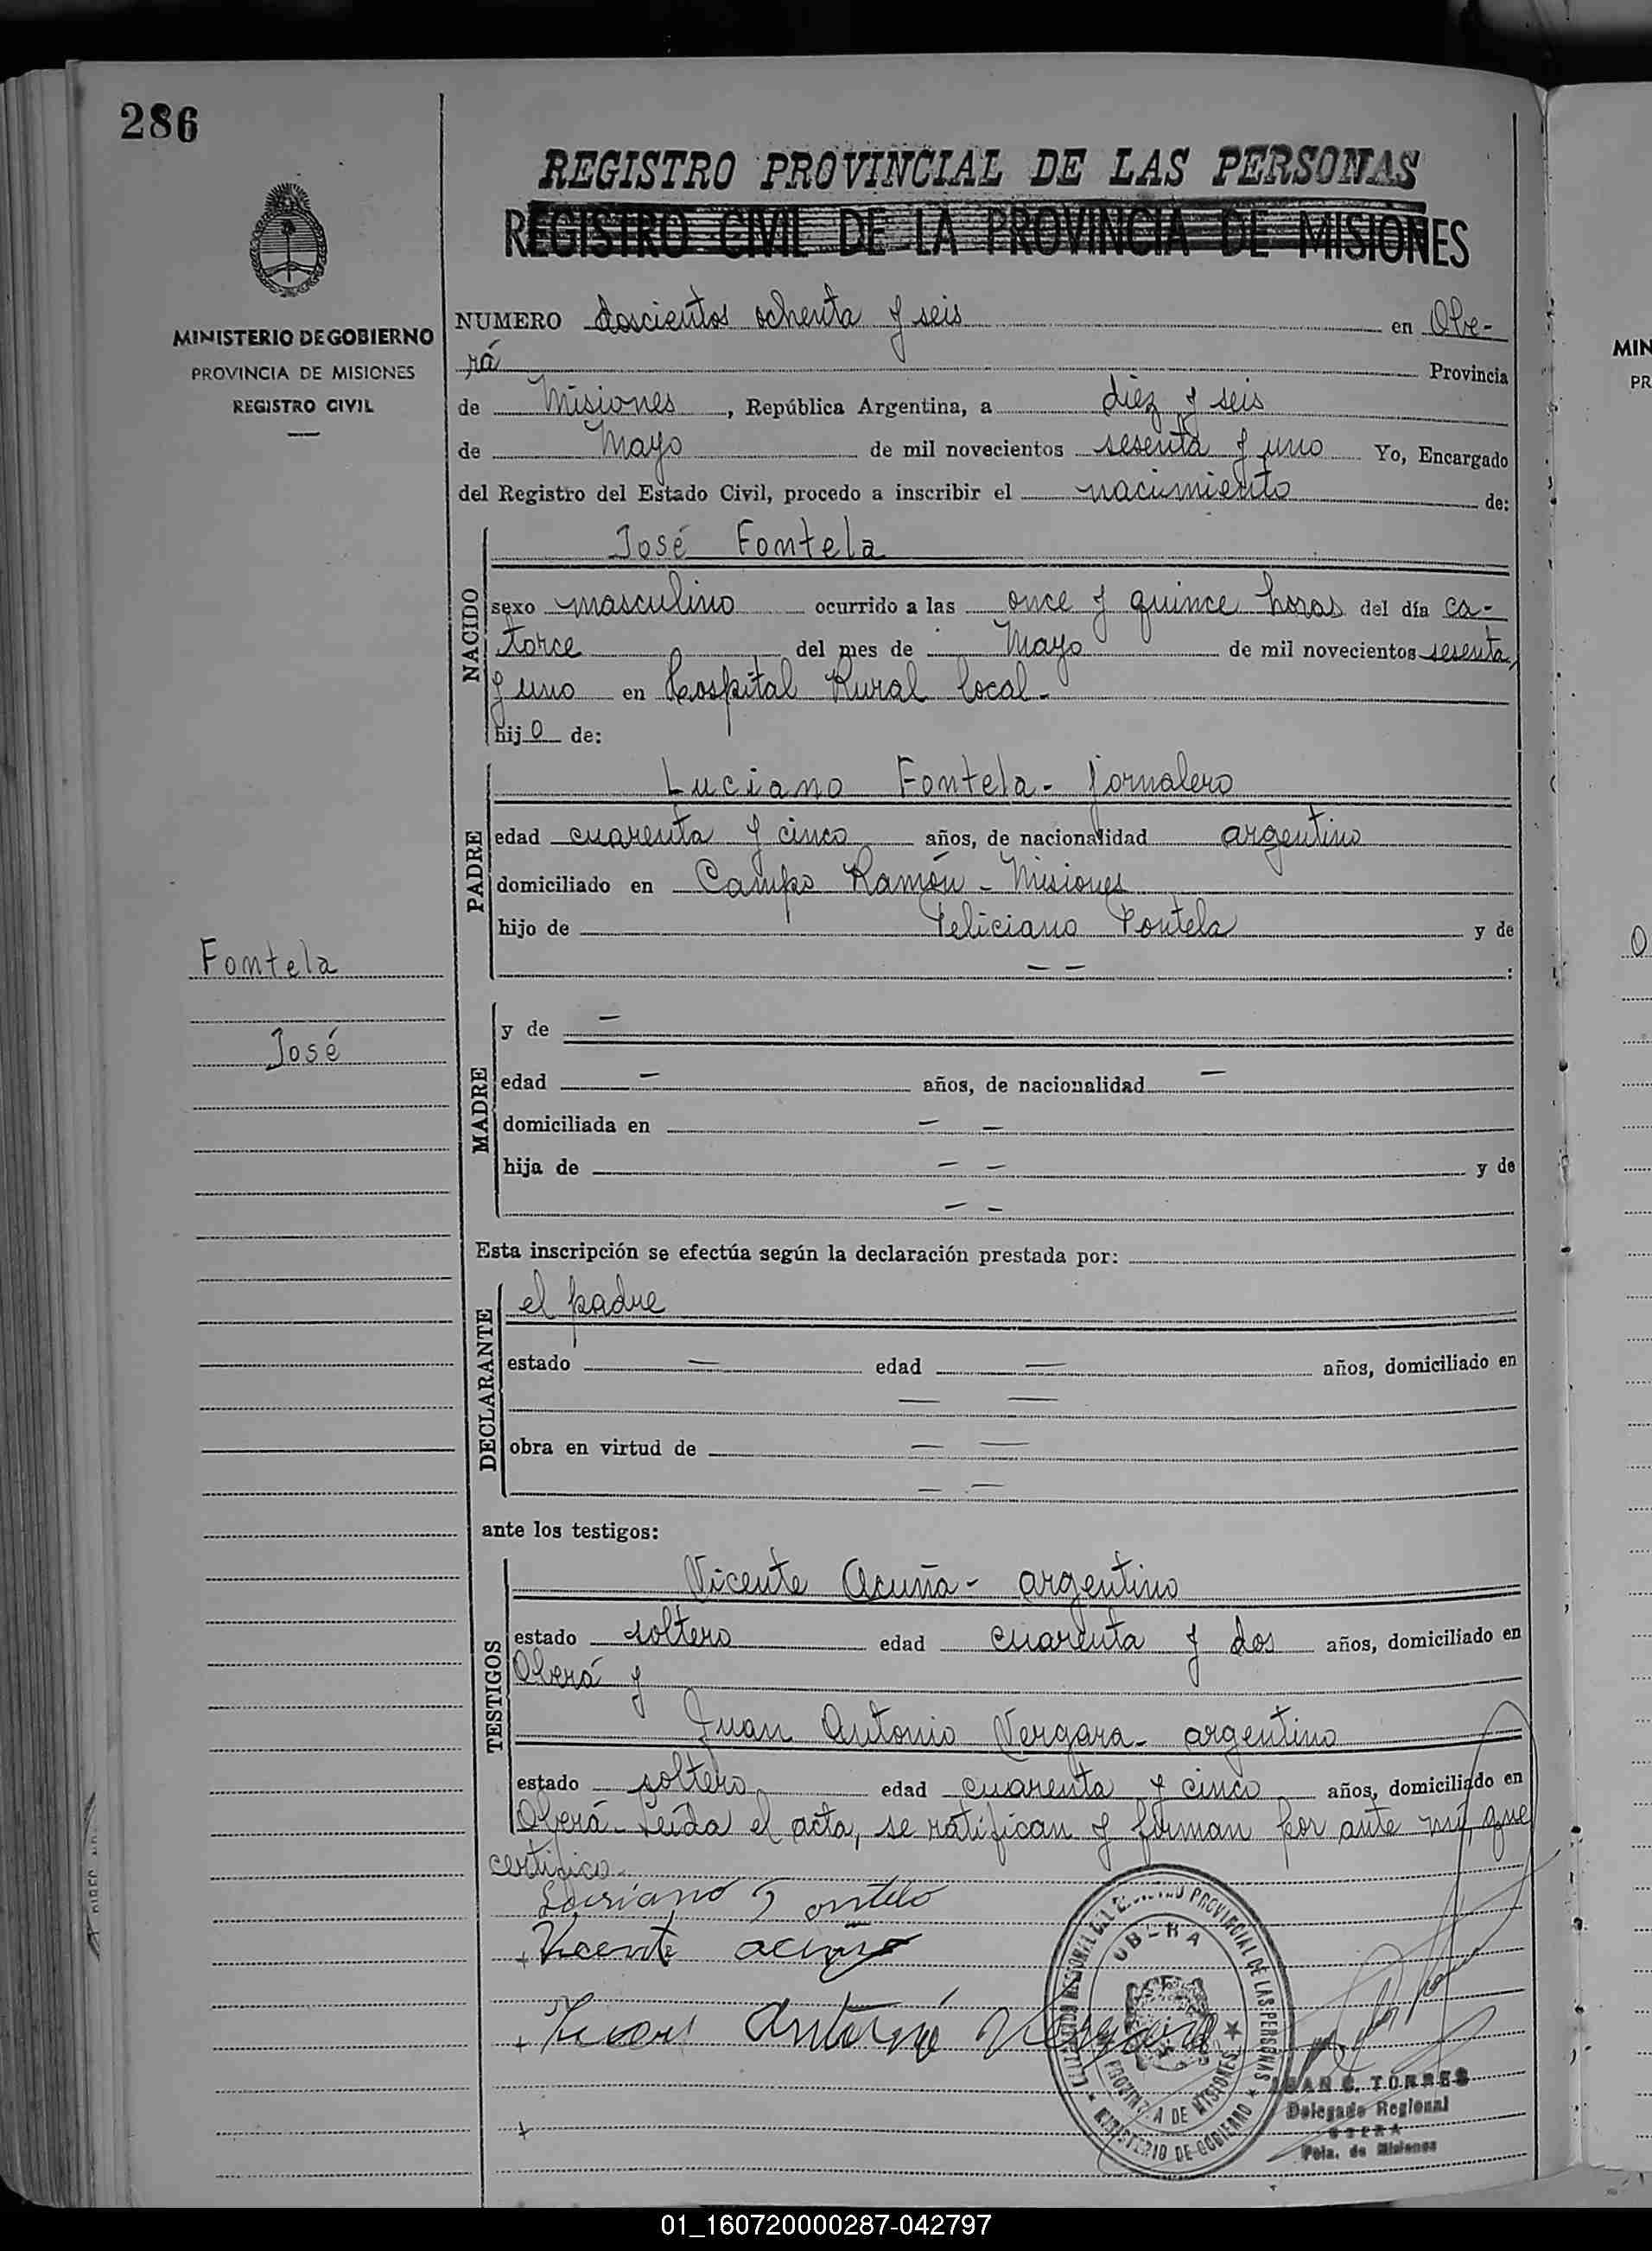 286
REGISTRO PROVINCIAL DE LAS PERSONAS
REGISTRO CIVIL DE LA PROVINCIA DE MISIONES
MINISTERIO DE GOBIERNO
PROVINCIA DE MISIONES
REGISTRO CIVIL
NUMERO doscientos ochenta y seis en Obe-
rá Provincia
de Misiones, República Argentina, a diez y seis
de Mayo de mil novecientos sesenta y uno Yo, Encargado
del Registro del Estado Civil, procedo a inscribir el nacimiento de:
NACIDO
José Fontela
sexo masculino ocurrido a las once y quince horas del día ca-
torce del mes de Mayo de mil novecientos sesenta
y uno en Hospital Rural local.-
hijo de:
PADRE
Luciano Fontela - jornalero
edad cuarenta y cinco años, de nacionalidad argentino
domiciliado en Campo Ramón - Misiones
hijo de Feliciano Fontela y de
— — :
Fontela
José
MADRE
y de —
edad — años, de nacionalidad —
domiciliada en — —
hija de — — y de
— —
Esta inscripción se efectúa según la declaración prestada por:
DECLARANTE
el padre
estado — edad — años, domiciliado en
— —
obra en virtud de — —
— —
ante los testigos:
TESTIGOS
Vicente Acuña - argentino
estado soltero edad cuarenta y dos años, domiciliado en
Oberá y
Juan Antonio Vergara - argentino
estado soltero edad cuarenta y cinco años, domiciliado en
Oberá - Leída el acta, se ratifican y firman por ante mí, que
certifico.-
Luciano Fontela
+ Vicente Acuña
+ Juan Antonio Vergara
+
REGIONAL DEL PROVINCIAL DE LAS PERSONAS
OBERA
PROVINCIA DE MISIONES
★ MINISTERIO DE GOBIERNO ★
JUAN C. TORRES
Delegado Regional
OBERA
Pcia. de Misiones
MIN
PR
O
01_160720000287-042797